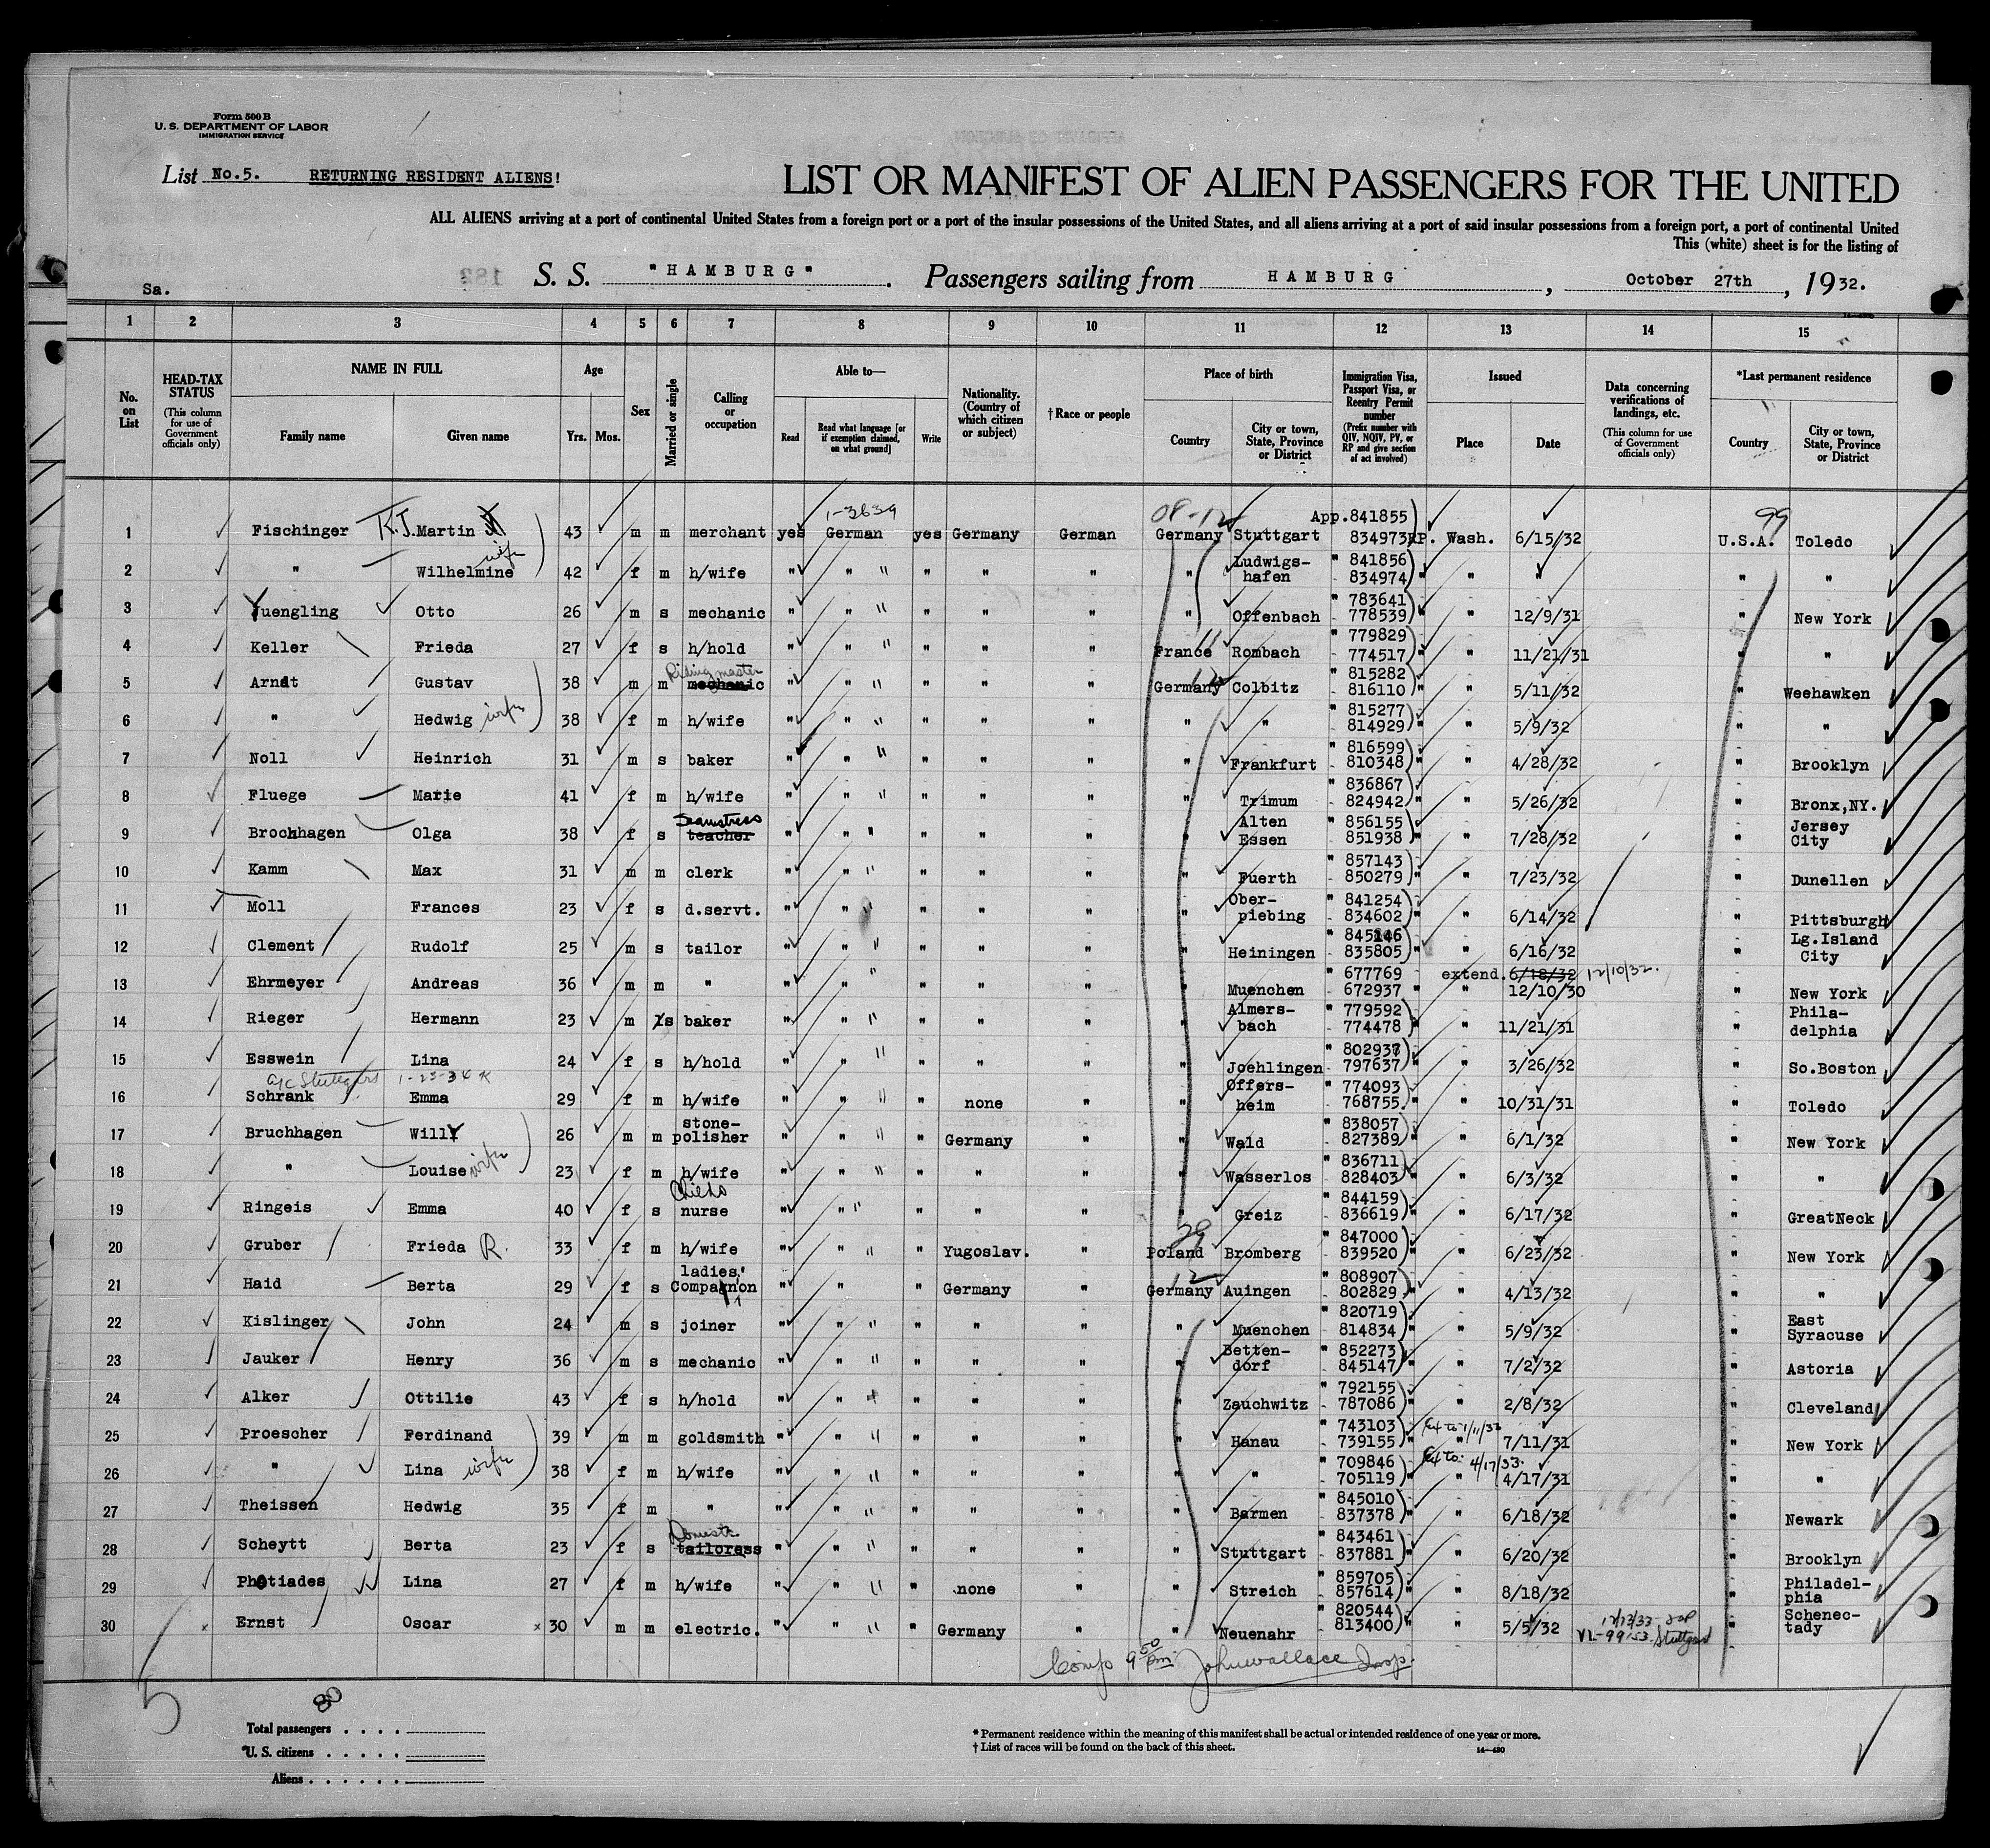 Form 500 B
U. S. DEPARTMENT OF LABOR
IMMIGRATION SERVICE
List No.5. RETURNING RESIDENT ALIENS!
LIST OR MANIFEST OF ALIEN PASSENGERS FOR THE UNITED
ALL ALIENS arriving at a port of continental United States from a foreign port or a port of the insular possessions of the United States, and all aliens arriving at a port of said insular possessions from a foreign port, a port of continental United
This (white) sheet is for the listing of
Sa. S. S. "HAMBURG". Passengers sailing from HAMBURG, October 27th, 1932.
1 2 3 4 5 6 7 8 9 10 11 12 13 14 15
No. on List
HEAD-TAX STATUS (This column for use of Government officials only)
NAME IN FULL Family name Given name
Age Yrs. Mos.
Sex
Married or single
Calling or occupation
Able to— Read Read what language [or if exemption claimed, on what ground] Write
Nationality. (Country of which citizen or subject)
†Race or people
Place of birth Country City or town, State, Province or District
Immigration Visa, Passport Visa, or Reentry Permit number (Prefix number with QIV, NQIV, PV, or RP and give section of act involved)
Issued Place Date
Data concerning verifications of landings, etc. (This column for use of Government officials only)
*Last permanent residence Country City or town, State, Province or District
1 Fischinger K.J. Martin 43 m m merchant yes German 1-3639 yes Germany German 08-12 Germany Stuttgart App.841855 834973 RP. Wash. 6/15/32 99 U.S.A. Toledo
2 " Wilhelmine wife 42 f m h/wife " " " " " " " Ludwigs-hafen " 841856 834974 " " " " "
3 Yuengling Otto 26 m s mechanic " " " " " " " Offenbach " 783641 778539 " " 12/9/31 " New York
4 Keller Frieda 27 f s h/hold " " " " " " 11 France Rombach " 779829 774517 " " 11/21/31 " "
5 Arndt Gustav 38 m m Riding master mechanic " " " " " " 12 Germany Colbitz " 815282 816110 " " 5/11/32 " Weehawken
6 " Hedwig wife 38 f m h/wife " " " " " " " " " 815277 814929 " " 5/9/32 " "
7 Noll Heinrich 31 m s baker " " " " " " " Frankfurt " 816599 810348 " " 4/28/32 " Brooklyn
8 Fluege Marie 41 f m h/wife " " " " " " " Trimum " 836867 824942 " " 5/26/32 " Bronx,NY.
9 Brochhagen Olga 38 f s Seamstress teacher " " " " " " " Alten Essen " 856155 851938 " " 7/28/32 " Jersey City
10 Kamm Max 31 m m clerk " " " " " " " Fuerth " 857143 850279 " " 7/23/32 " Dunellen
11 Moll Frances 23 f s d.servt. " " " " " " " Ober-piebing " 841254 834602 " " 6/14/32 " Pittsburgh
12 Clement Rudolf 25 m s tailor " " " " " " " Heiningen " 835805 " " 6/16/32 " Lg.Island City
13 Ehrmeyer Andreas 36 m m " " " " " " " " Muenchen " 677769 672937 " extend. 6/18/32 12/10/32. " 12/10/30 " New York
14 Rieger Hermann 23 m s baker " " " " " " " Almers-bach " 779592 774478 " " 11/21/31 " Phila-delphia
15 Esswein Lina 24 f s h/hold " " " " " " " Joehlingen " 802937 797637 " " 3/26/32 " So.Boston
16 Schrank Emma 29 f m h/wife " " " " none " " Offers-heim " 774093 768755 " " 10/31/31 " Toledo
17 Bruchhagen Willy 26 m m stone-polisher " " " " Germany " " Wald " 838057 827389 " " 6/1/32 " New York
18 " Louise wife 23 f m h/wife " " " " " " " Wasserlos " 836711 828403 " " 6/3/32 " "
19 Ringeis Emma 40 f s Childs nurse " " " " " " " Greiz " 844159 836619 " " 6/17/32 " GreatNeck
20 Gruber Frieda R. 33 f m h/wife " " " " Yugoslav. " 29 Poland Bromberg " 847000 839520 " " 6/23/32 " New York
21 Haid Berta 29 f s ladies' Compagnon " " " Germany " 12 Germany Auingen " 808907 802829 " " 4/13/32 " "
22 Kislinger John 24 m s joiner " " " " " " " Muenchen " 820719 814834 " " 5/9/32 " East Syracuse
23 Jauker Henry 36 m s mechanic " " " " " " " Betten-dorf " 852273 845147 " " 7/2/32 " Astoria
24 Alker Ottilie 43 f s h/hold " " " " " " Zauchwitz " 792155 787086 " " 2/8/32 " Cleveland
25 Proescher Ferdinand 39 m m goldsmith " " " " " " " Hanau " 743103 739155 Ext to 1/11/33 " 7/11/31 " New York
26 " Lina wife 38 f m h/wife " " " " " " " " " 709846 705119 Ext to 4/17/33. " 4/17/31 " "
27 Theissen Hedwig 35 f m " " " " " " " " Barmen " 845010 837378 " " 6/18/32 " Newark
28 Scheytt Berta 23 f s Domestic tailoress " " " " " " " Stuttgart " 843461 837881 " " 6/20/32 " Brooklyn
29 Photiades Lina 27 f m h/wife " " " " none " " Streich " 859705 857614 " " 8/18/32 " Philadel-phia
30 Ernst Oscar x 30 m m electric. " " " " Germany " " Neuenahr " 820544 813400 " " 5/5/32 Stuttgart " Schenec-tady
Comp 9 50 pm John Wallace Insp.
5
30
Total passengers
*U. S. citizens
Aliens
* Permanent residence within the meaning of this manifest shall be actual or intended residence of one year or more.
† List of races will be found on the back of this sheet.
14—430